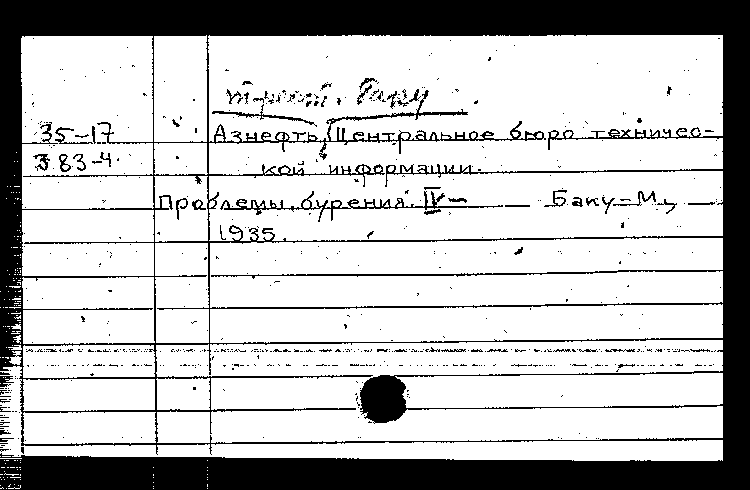 трест. Баку
35-17 Азнефть, Центральное бюро техничес-
383-4. кой информации.
Проблемы бурения. IV- Баку-М.,
1935.